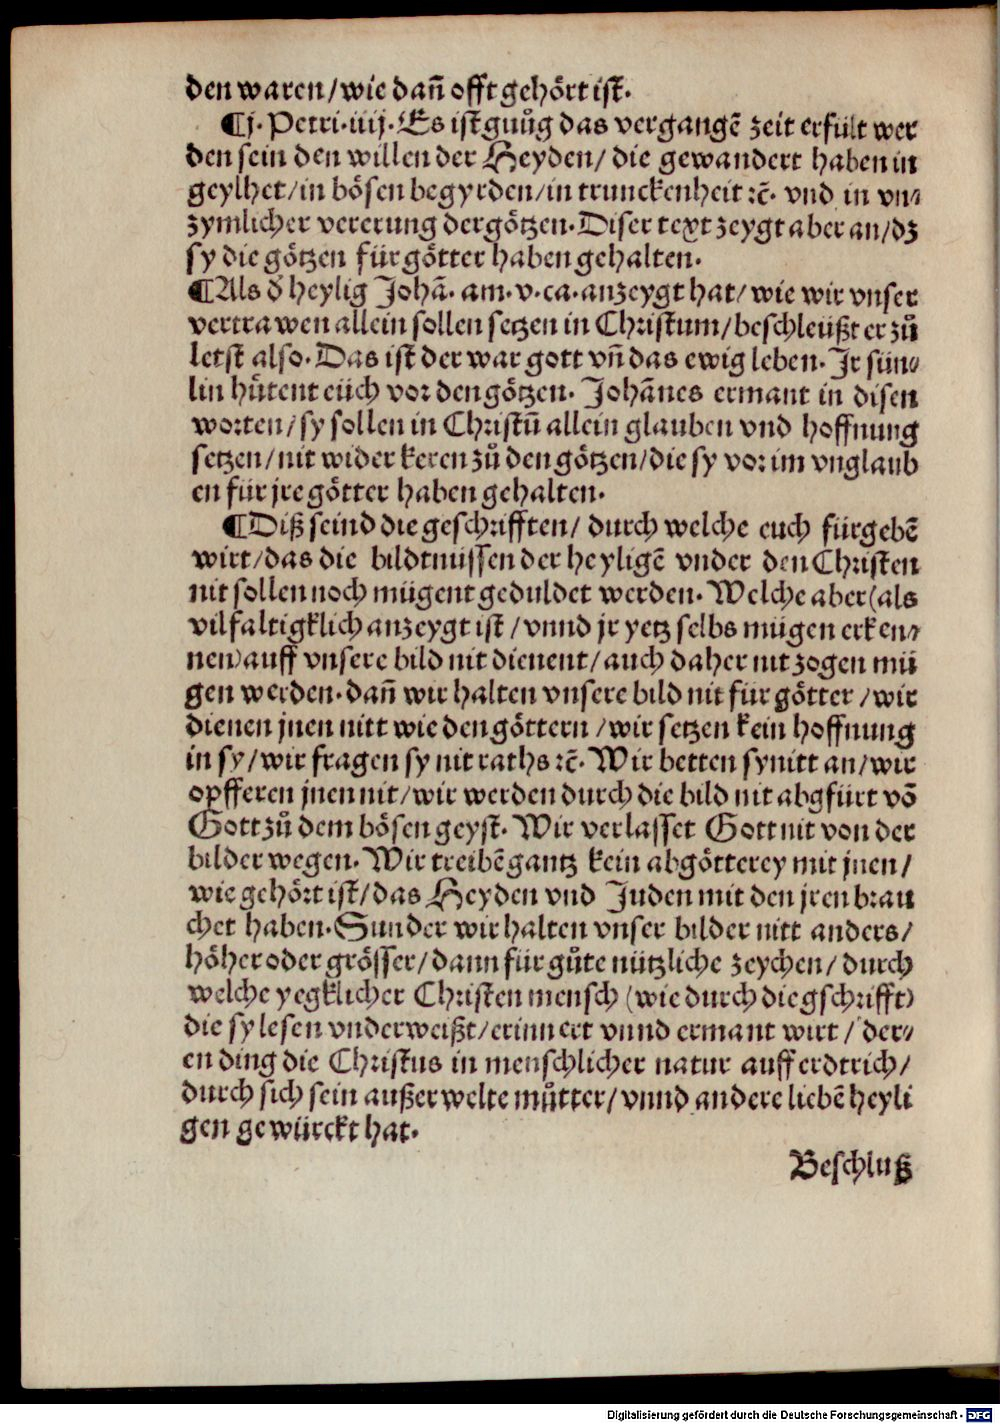 den waren/wie dañ offt gehört ist.
¶j. Petri.iiij. Es ist gnůg das vergangē zeit erfült wer
den sein den willen der Heyden/ die gewandert haben in
geylhet/in bösen begyrden/in trunckenheit ꝛc̄. vnd in vn⸗
zymlicher vererung der götzen. Diser text zeygt aber an/dz
sy die götzen für götter haben gehalten.
¶Als d̄ heylig Johā. am. v. ca. anzeygt hat/ wie wir vnser
vertrawen allein sollen setzen in Christum/beschleüßt er zů
letst also. Das ist der war gott vñ das ewig leben. Jr sün⸗
lin hůtent eüch vor den götzen. Johānes ermant in disen
worten/sy sollen in Christū allein glauben vnd hoffnung
setzen/nit wider keren zů den götzen/die sy vor im vnglaub
en für jre götter haben gehalten.
¶Diß seind die geschrifften/ durch welche euch fürgebē
wirt/das die bildtnüssen der heyligē vnder den Christen
nit sollen noch mügent geduldet werden. Welche aber(als
vilfaltigklich anzeygt ist/vnnd jr yetz selbs mügen erken⸗
nen)auff vnsere bild nit dienent/auch daher nit zogen mü
gen werden. dañ wir halten vnsere bild nit für götter/wir
dienen jnen nitt wie den göttern/wir setzen kein hoffnung
in sy/wir fragen sy nit raths ꝛc̄. Wir betten sy nitt an/wir
opfferen jnen nit/wir werden durch die bild nit abgfürt vō
Gott zů dem bösen geyst. Wir verlasset Gott nit von der
bilder wegen. Wir treibē gantz kein abgötterey mit jnen/
wie gehört ist/das Heyden vnd Juden mit den jren brau
chet haben. Sunder wir halten vnser bilder nitt anders/
höher oder grösser/dann für gůte nützliche zeychen/durch
welche yegklicher Christen mensch (wie durch die gschrifft)
die sy lesen vnderweißt/erinnert vnnd ermant wirt/ der⸗
en ding die Christus in menschlicher natur auff erdtrich/
durch sich sein außerwelte můtter/vnnd andere liebē heyli
gen gewürckt hat.
Beschluß
Digitalisierung gefördert durch die Deutsche Forschungsgemeinschaft - DFG